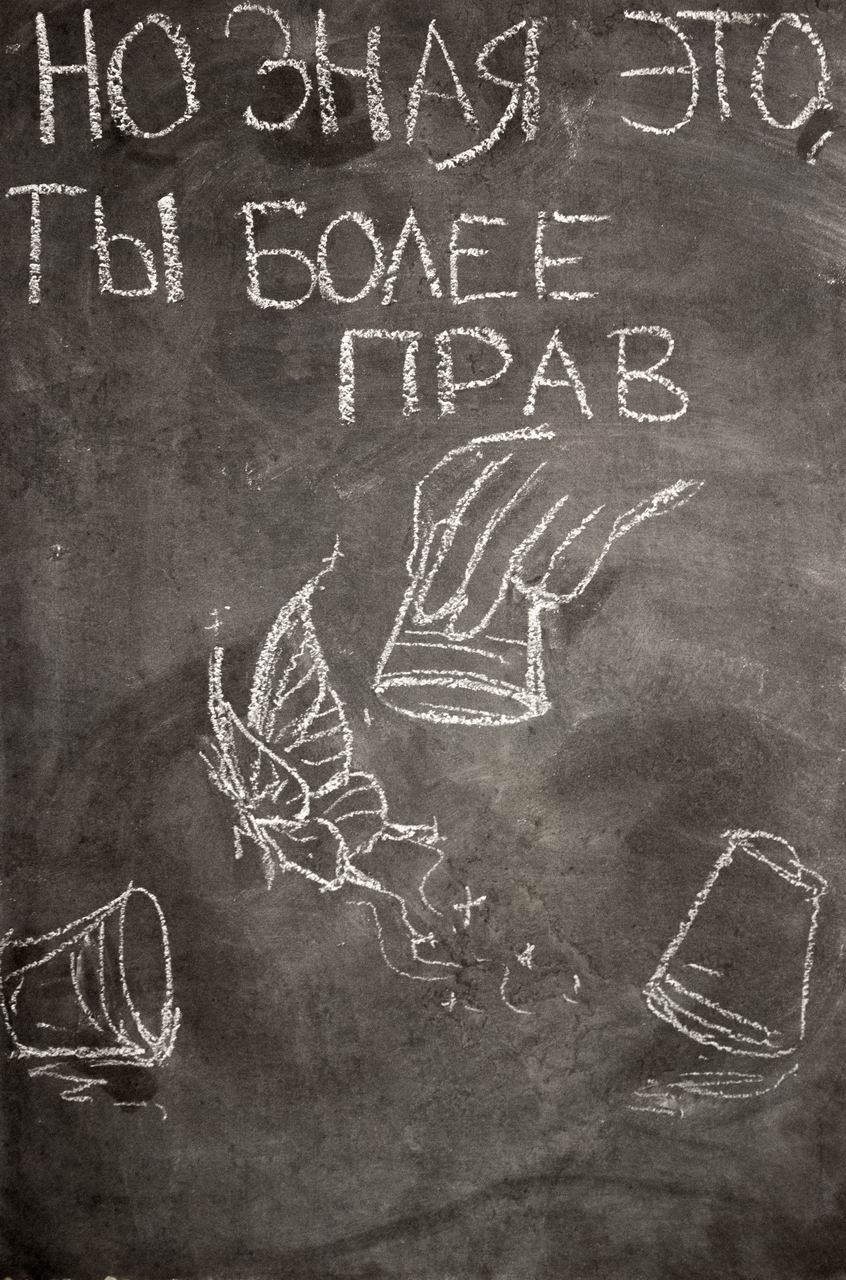 НО ЗНАЯ ЭТО,
ТЫ БОЛЕЕ
ПРАВ